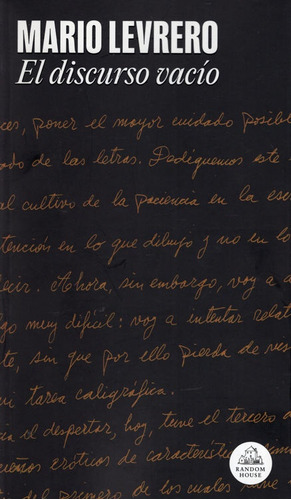 MARIO LEVRERO
El discurso vacío
ces, poner el mayor cuidado posibl
ado de las letras. Dediquemos este
al cultivo de la paciencia en la esc
tención en lo que dibujo y no en lo
decir. Ahora, sin embargo, voy a a
lgo muy difícil: voy a intentar relat
te, sin que por ello pierda de vis
mi tarea caligráfica.
al despertar, hoy, tuve el tercero d
sueños eróticos de característic
del primero de los cuales
RANDOM
HOUSE